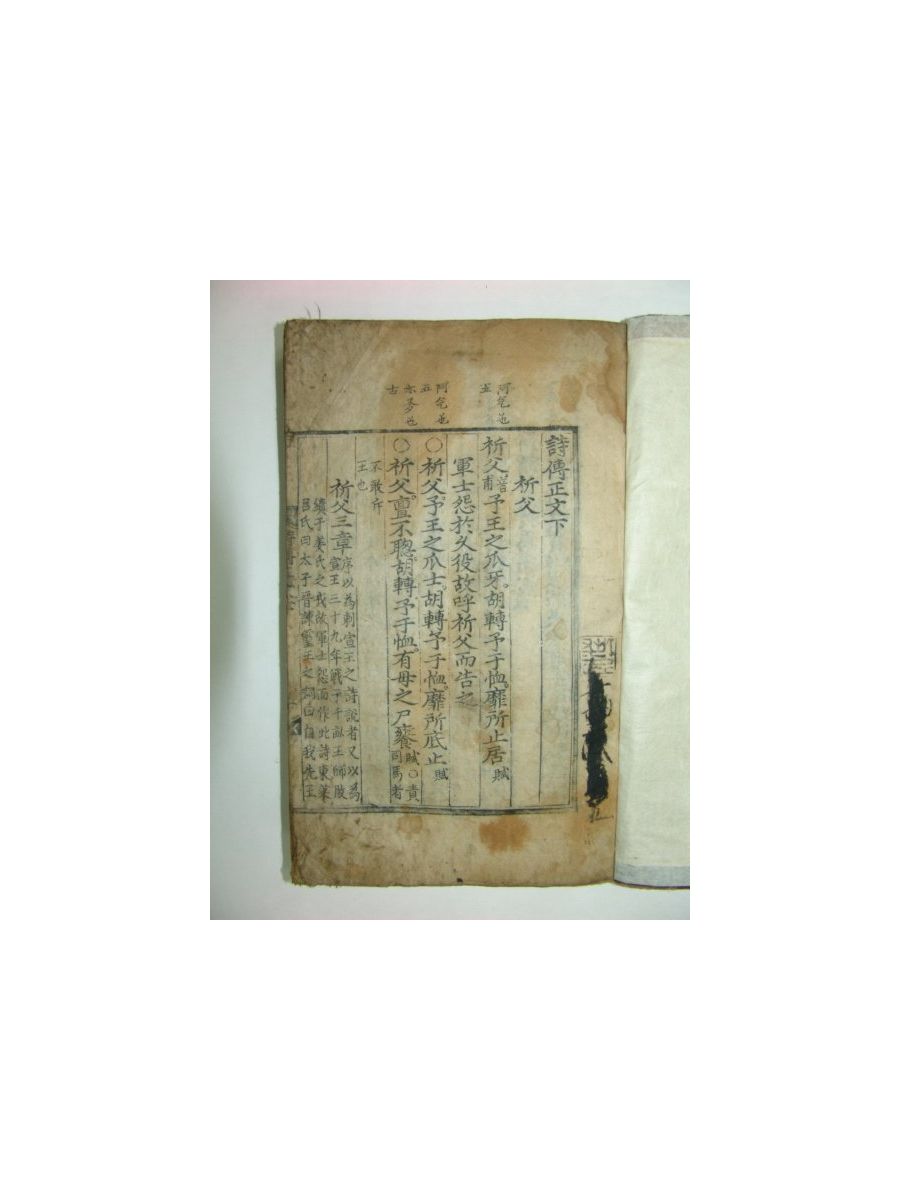 詩傳正文下
祈父
祈父音甫予王之爪牙。胡轉予于恤。靡所止居賦
軍士怨於久役故呼祈父而告之
○祈父。予王之爪士。胡轉予于恤。靡所底止賦
○祈父。亶不聰。胡轉予于恤。有母之尸饔賦○責司馬者
不敢斥王也
祈父三章序以為刺宣王之詩說者又以為
宣王三十九年戰于千畝王師敗
績于姜氏之戎故軍士怨而作此詩東萊
呂氏曰太子晉諫靈王之詞曰自我先王